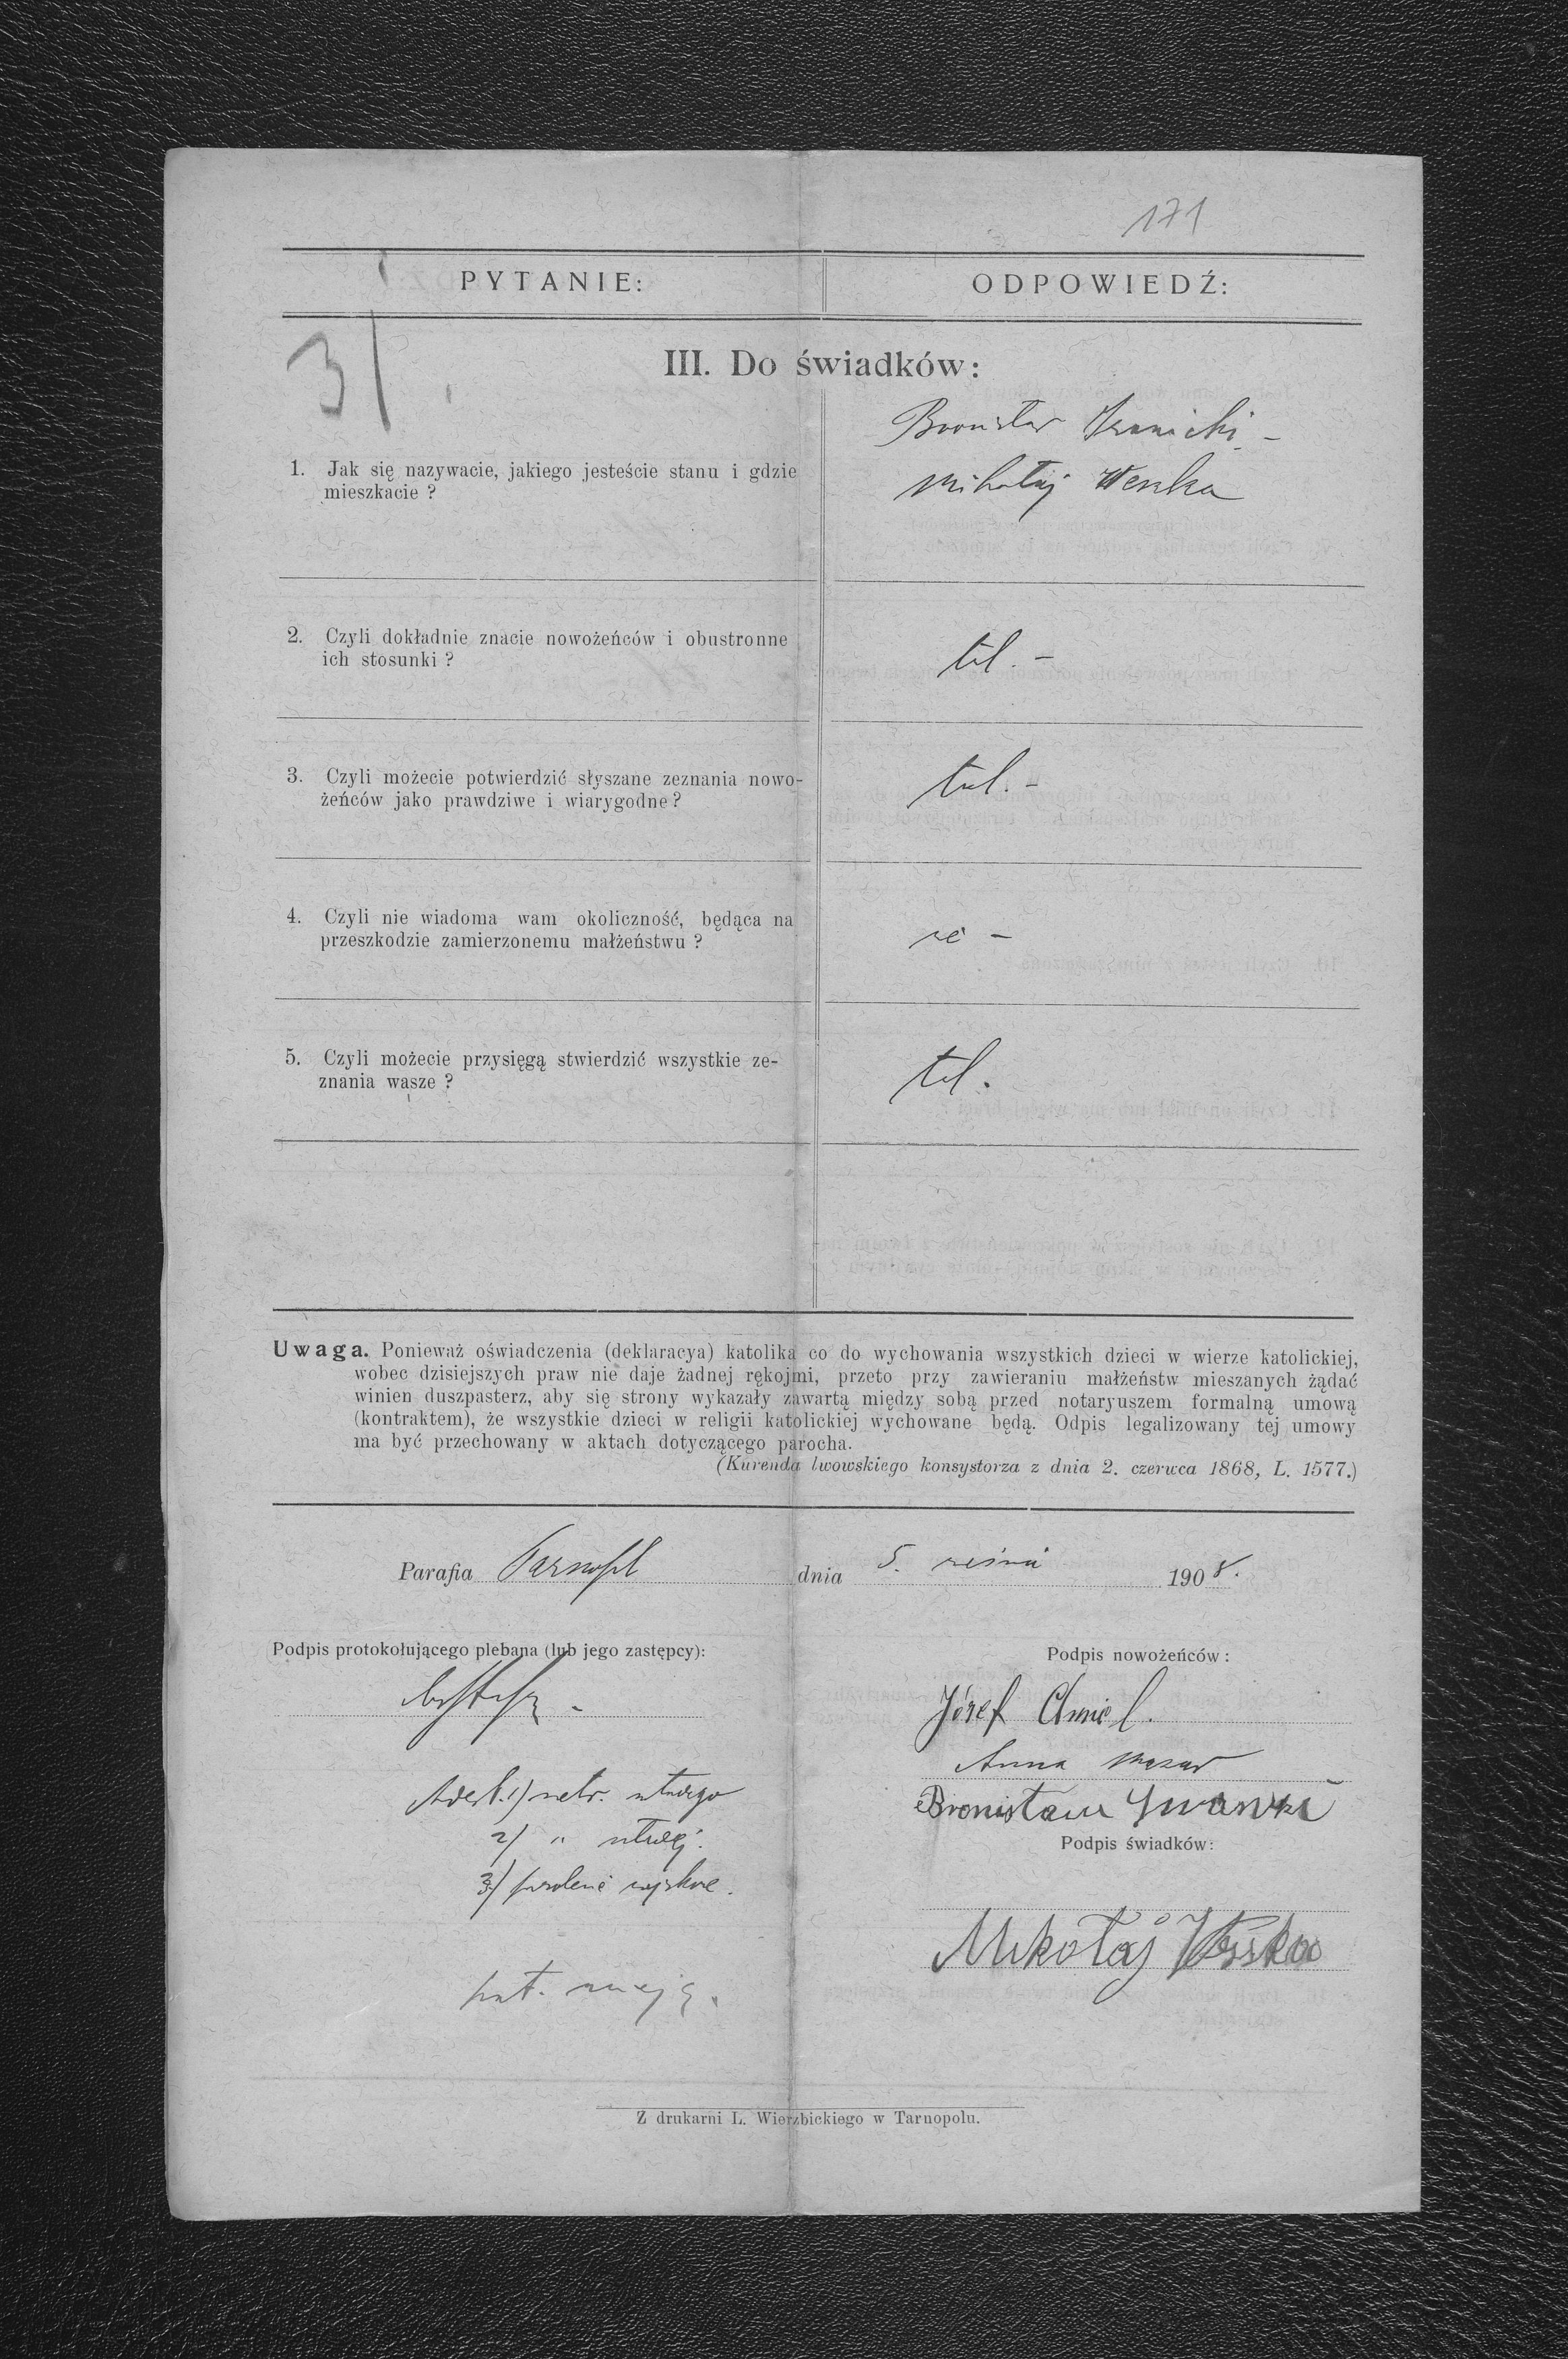 171
PYTANIE:
ODPOWIEDŹ:
31.
III. Do świadków:
Bronisław Iwanicki –
Mikołaj Weska
1. Jak się nazywacie, jakiego jesteście stanu i gdzie
mieszkacie ?
2. Czyli dokładnie znacie nowożeńców i obustronne
ich stosunki ?
3. Czyli możecie potwierdzić słyszane zeznania nowo-
żeńców jako prawdziwe i wiarygodne ?
4. Czyli nie wiadoma wam okoliczność, będąca na
przeszkodzie zamierzonemu małżeństwu ?
5. Czyli możecie przysięgą stwierdzić wszystkie ze-
znania wasze ?
Uwaga. Ponieważ oświadczenia (deklaracya) katolika co do wychowania wszystkich dzieci w wierze katolickiej,
wobec dzisiejszych praw nie daje żadnej rękojmi, przeto przy zawieraniu małżeństw mieszanych żądać
winien duszpasterz, aby się strony wykazały zawartą między sobą przed notaryuszem formalną umową
(kontraktem), że wszystkie dzieci w religii katolickiej wychowane będą. Odpis legalizowany tej umowy
ma być przechowany w aktach dotyczącego parocha.
(Kurenda lwowskiego konsystorza z dnia 2. czerwca 1868, L. 1577.)
Parafia Tarnopol dnia 5. 1908.
Podpis protokołującego plebana (lub jego zastępcy):
Podpis nowożeńców :
Józef Chmiel.
Anna Mazur
Bronisław
Podpis świadków:
1) metr.
2) "
3)
Mikołaj Weska
Z drukarni L. Wierzbickiego w Tarnopolu.